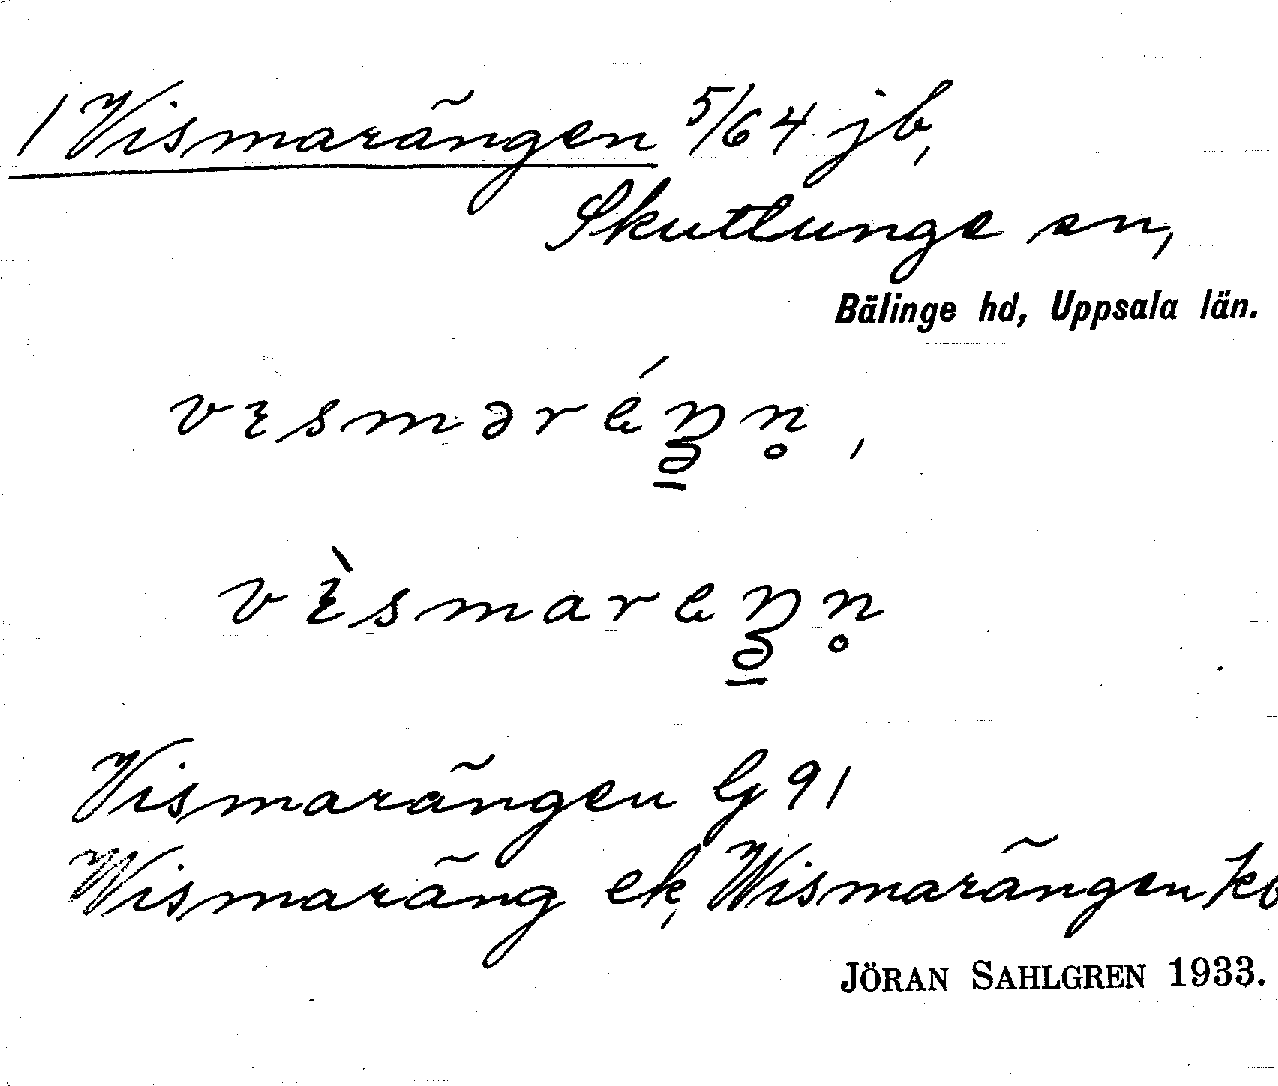 1 Vismarängen 5/64 jb,
Skuttunge sn,
Bälinge hd, Uppsala län.
vɪsməréŋn̥,
vɪ̀smareŋn̥
Vismarängen G 91
Wismaräng ek, Wismarängen ko
JÖRAN SAHLGREN 1933.